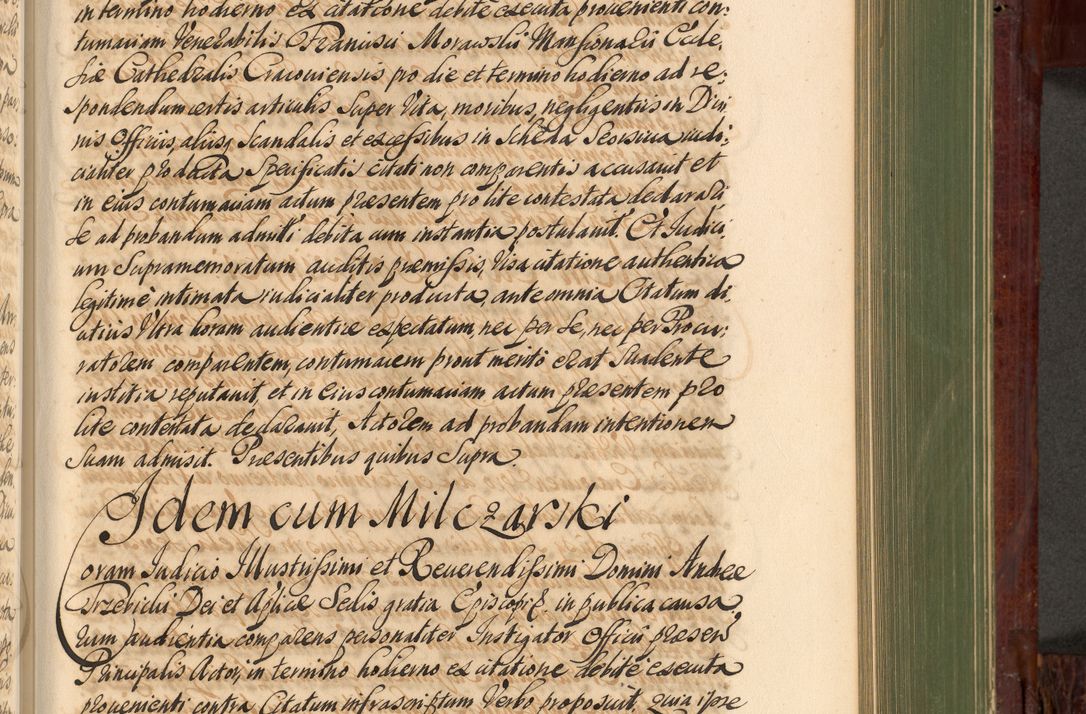 in termino hodierno ex citatione debite executa provenienti con:
tumaciam Venerabilis Francisci Morawski Mansionarii Eccle,
siæ Cathedralis Cracoviensis pro die et termino hodierno ad re:
spondendum certis articulis super Vita, moribus, negligentiis in Divi
nis Officiis, aliisq scandalis et excessibus in scheda seorsiva iudi:
cialiter producta specificatis citati non comparentis accusavit et
in eius contumaciam actum præsentem pro lite contestata declarari
se ad probandum admitti debita cum instantia postulavit. Et Iudici
um Supramemoratum auditis præmissis, Visa citatione authentica
legitimè intimata iudicialiter producta, ante omnia Citatum di,
utius Ultra horam audientiæ expectatum, nec per se, nec per Procu:
ratorem comparentem, contumacem prout meritò erat suadente
iustitia reputavit, et in eius contumaciam actum præsentem pro
lite contestata declaravit, Actorem ad probandam intentionem
suam admisit. Præsentibus quibus supra.
Idem cum Milczarski
Coram Iudicio Illustrissimi et Reverendissimi Domini Andreæ
Trzebicki Dei et Aplicæ Sedis gratia Episcopi &, in publica causa,
rum audientia comparens personaliter Instigator Officii præsen
Principalis Actor, in termino hodierno ex citatione debitè executa
provenienti contra Citatum infrascriptum Verbo proposuit, quia ipse